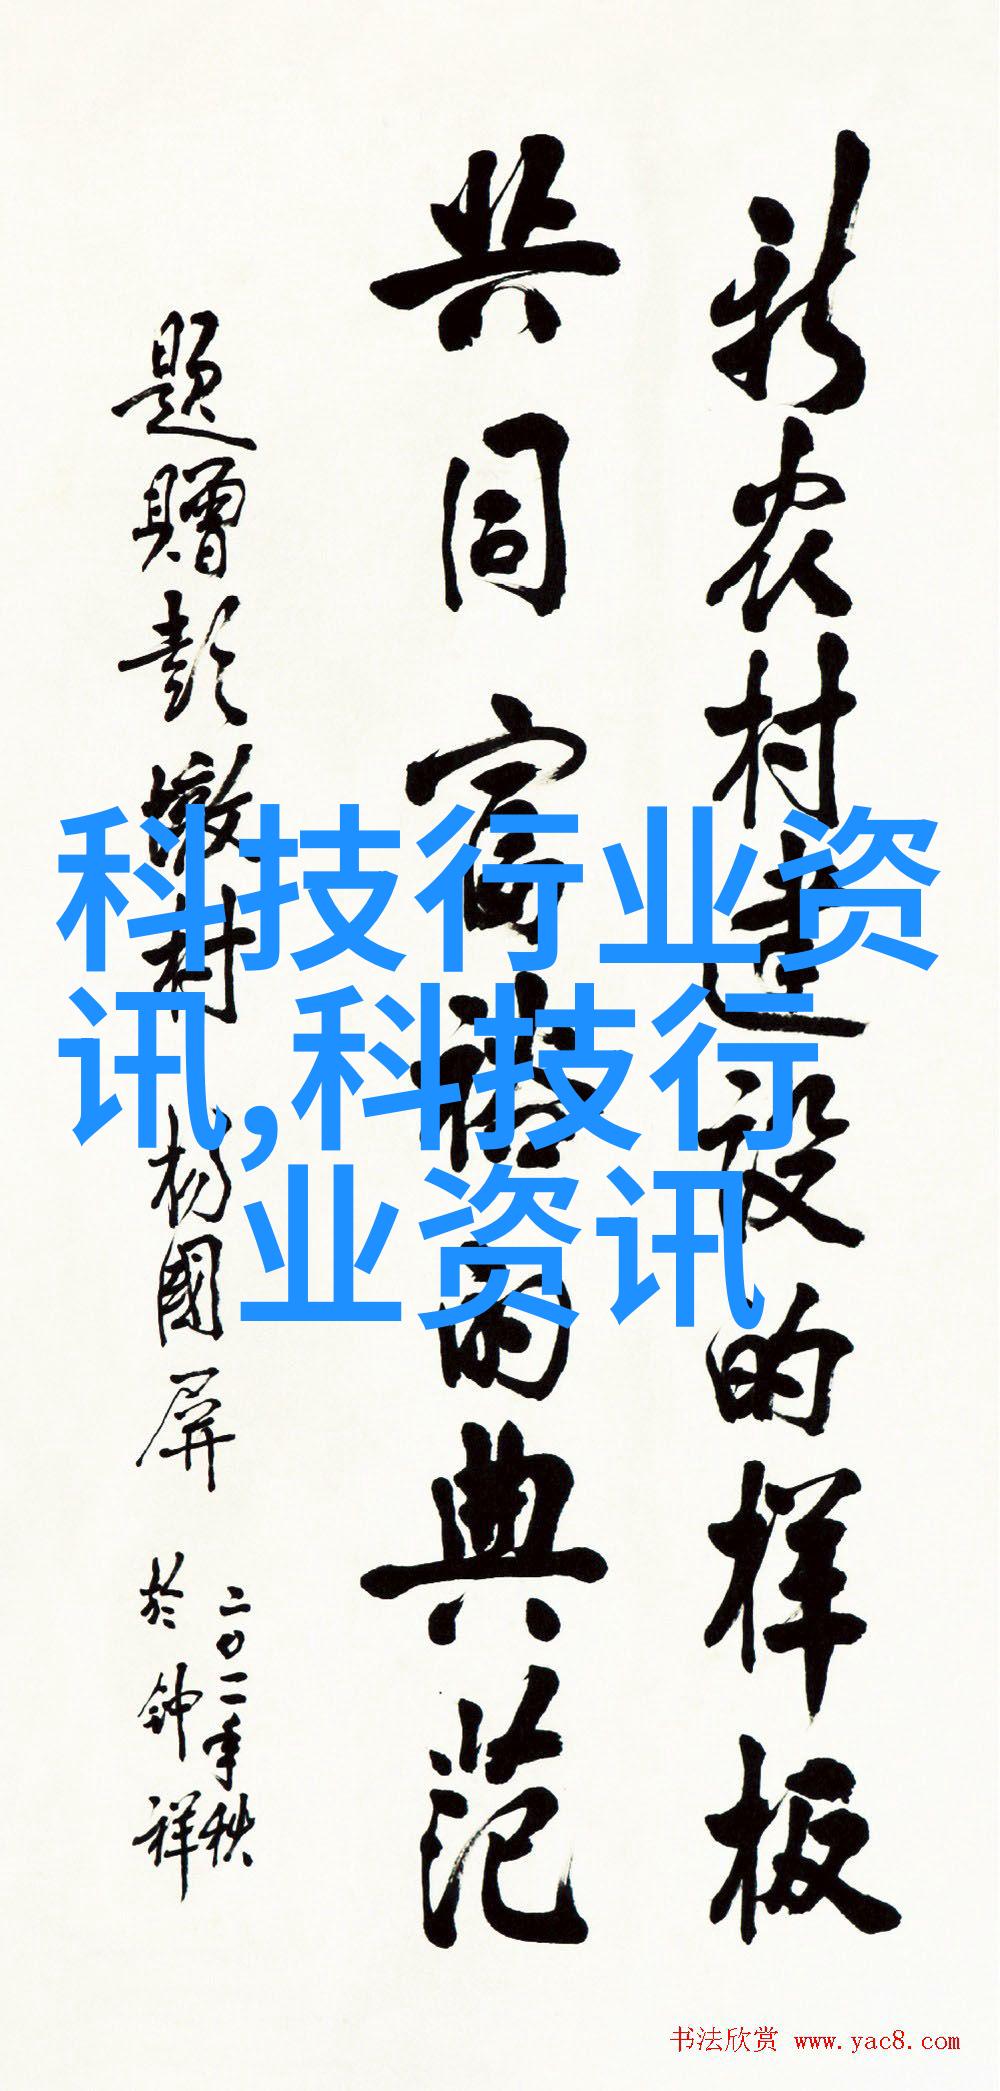 新农村建设的样板
共同富裕的典范
题赠彭墩村 杨国屏
二〇一一年秋
於钟祥
科技行业资
讯,科技行
业资讯
书法欣赏 www.yac8.com